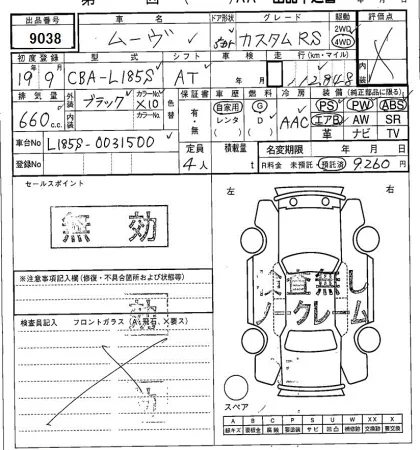 出品番号 車名 ドア形状 グレード 駆動 評価点
9038 ムーヴ カスタムRS 2WD 4WD
初度登録 型式 シフト 車検 走行(km・マイル)
19年9月 CBA-L185S AT 年 月 112,948
排気量 外装 ブラック カラーNo. X10 色替 保証書 車歴 燃料 冷房 装備(純正部品に限る)
660c.c. 内装 カラーNo. 有・無 自家用 レンタ G D AAC PS PW ABS
エアB AW SR
革 ナビ TV
車台No L185S-0031500 定員 積載量 名変期限 年 月 日
登録No 4人 t R料金 未預託 預託済 9260円
セールスポイント
無効
左 右
※注意事項記入欄(修復・不具合箇所および状態等)
検査員記入 フロントガラス(A、飛石、X要ス)
検査無し
ノークレーム
スペア
A B C P S U W XX X